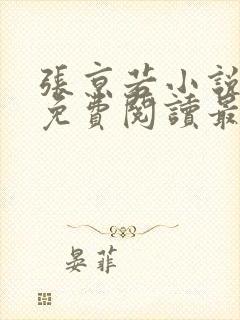 張京若小說
免費閱讀最
晏菲